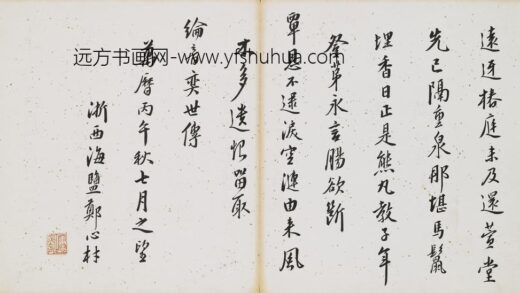 遠椿庭未及還萱堂
先已隔重泉那堪馬鬣
埋香日正是熊丸教子年
祭永言腸欲斷
覃恩不逮淚空漣由来風
木多遺恨留取
綸音奕世傳
萬曆丙午秋七月之望
浙西海鹽鄭心材
远方书画网-www.yfshuhua.com